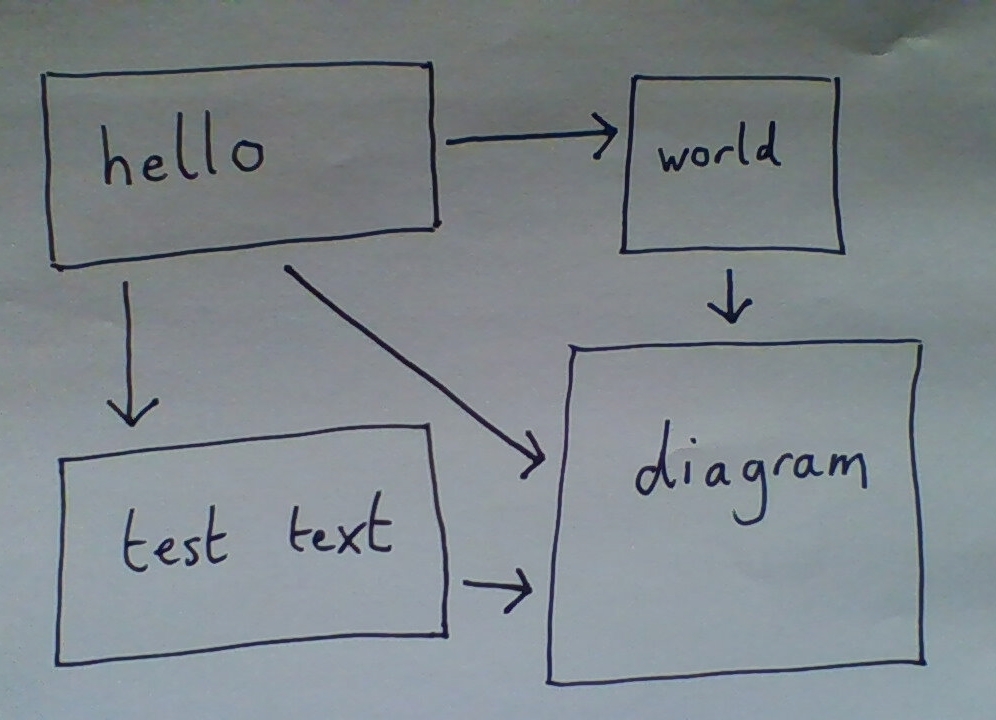 hello
world
test text
diagram